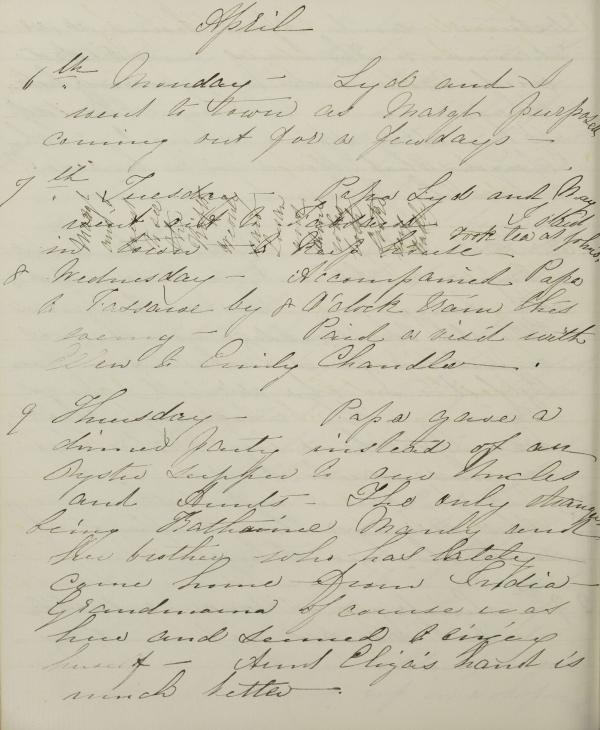 April
6th Monday - Lyd and I
went to town as Margt purposed
coming out for a few days -
7th Tuesday - Papa Lyd and May
went out to
I staid
in town to keep house - took tea at Johns,
8 Wednesday - Accompanied Papa
to Passaic by 8 O'clock train this
Paid a visit with
Ellen to Emily Chandler.
9 Thursday - Papa gave a
dinner party instead of an
Oyster supper to our Uncles
and Aunts - The only strangers
being Katharine Manly and
her brother who has lately
come home from India -
Grandmama of course was
here and seemed to enjoy
herself - Aunt Eliza's hand is
much better.